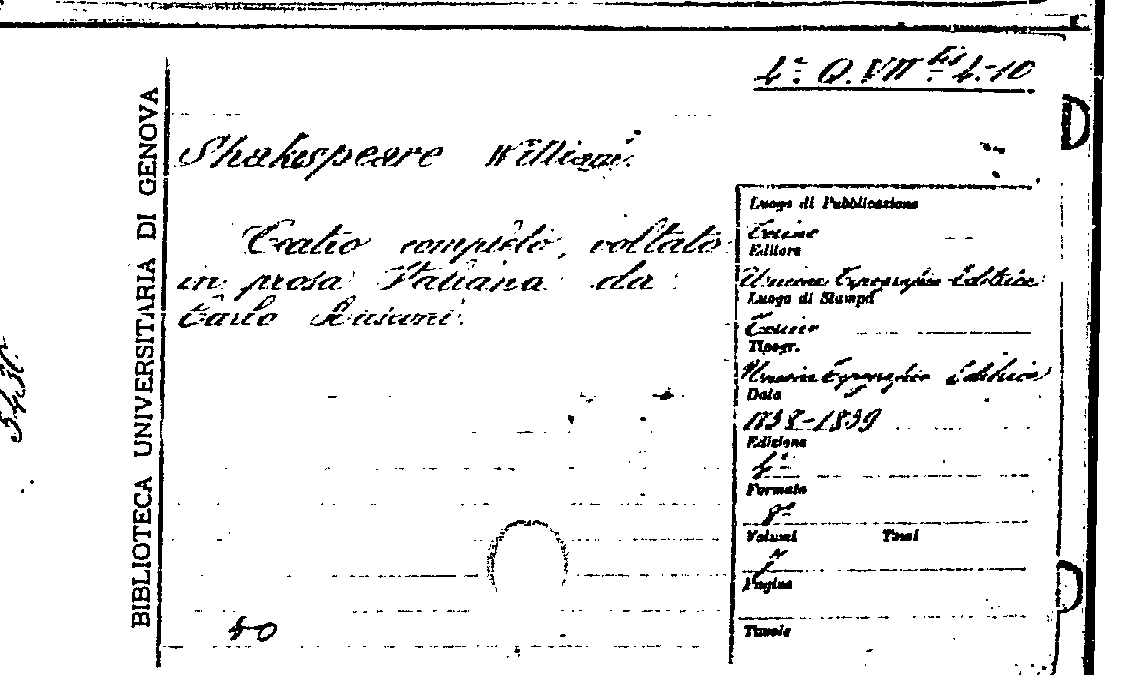 4ª Q.VII bis 4-10
Shakespeare William.
Teatro completo, voltato
in prosa Italiana da
Carlo Rusconi.
BIBLIOTECA UNIVERSITARIA DI GENOVA
Luogo di Pubblicazione
Torino
Editore
Unione Tipografico Editrice
Luogo di Stampa
Torino
Tipogr.
Unione Tipografico Editrice
Data
1858-1859
Edizione
4ª
Formato
8º
Volumi Tomi
7
Pagine
Tavole
40